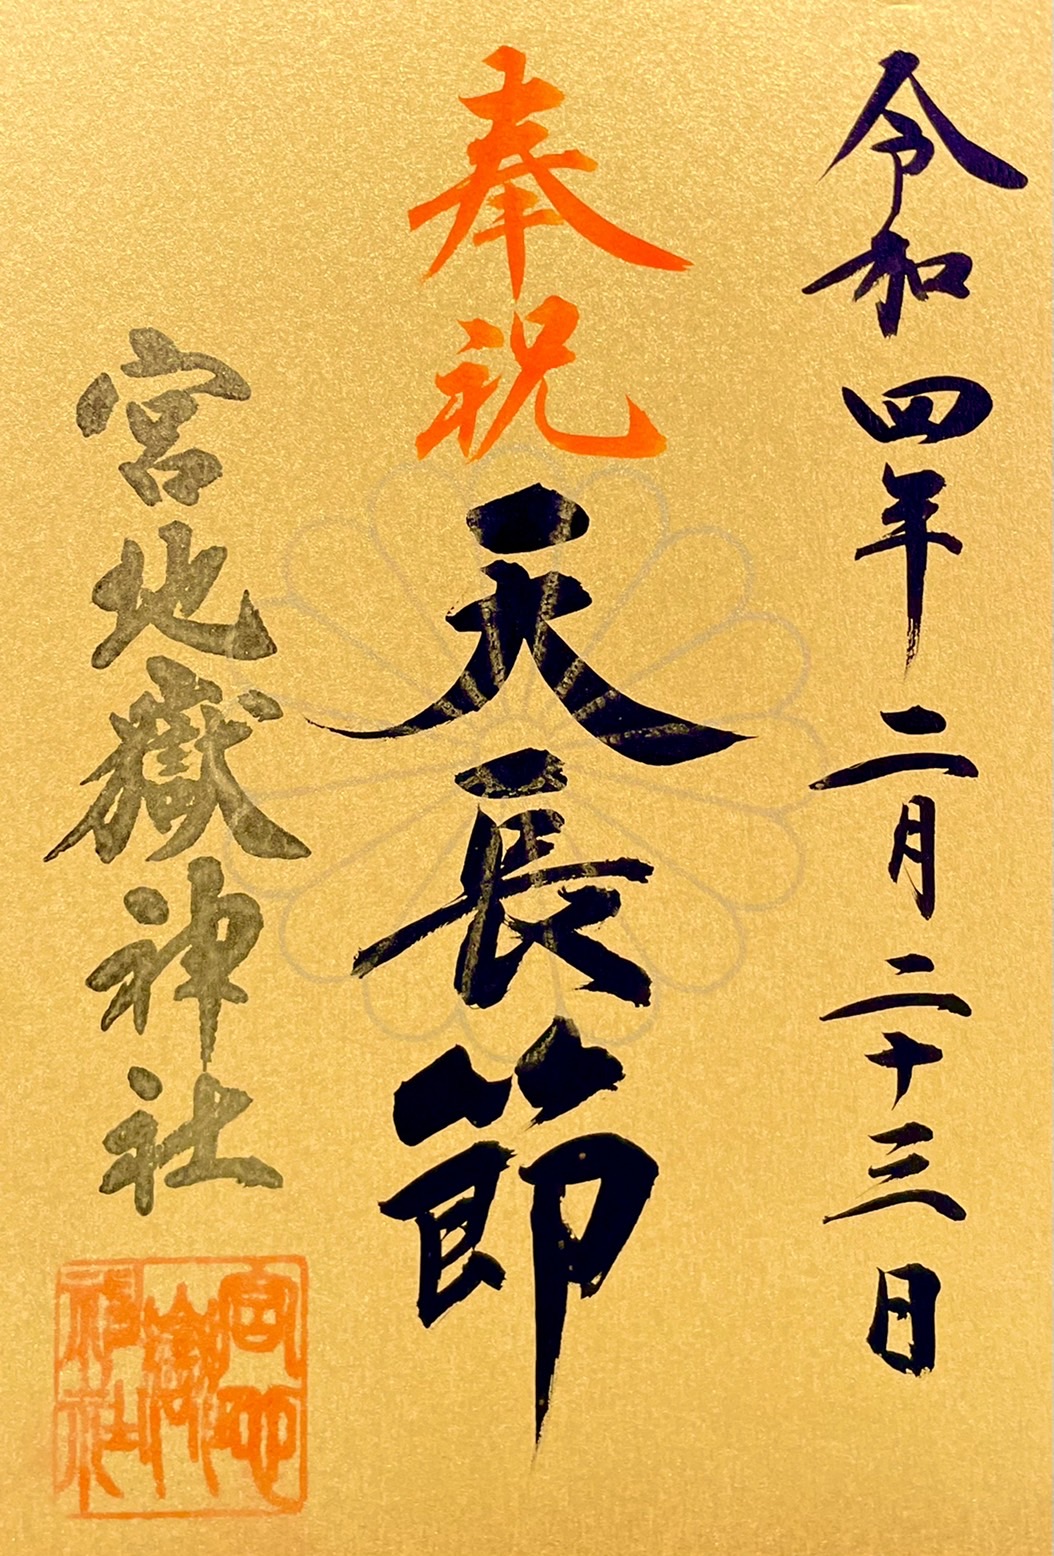 令和四年二月二十三日
奉祝
天長節
宮地嶽神社
宮地嶽神社